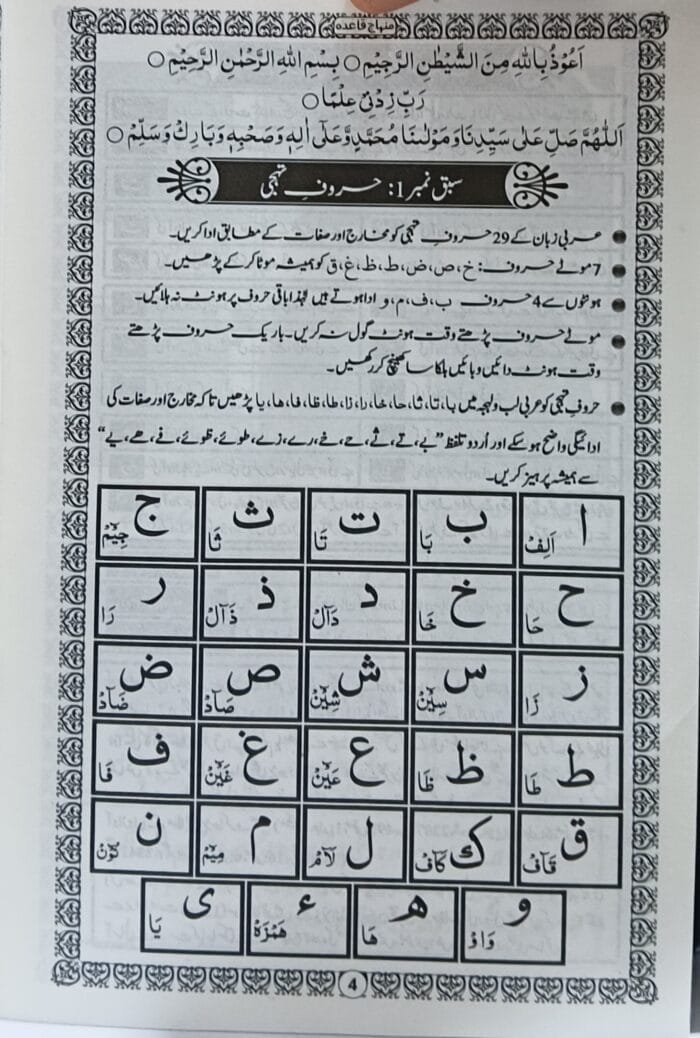 منہاج قاعدہ
اَعُوْذُ بِاللّٰهِ مِنَ الشَّيْطٰنِ الرَّجِيْمِ ○ بِسْمِ اللّٰهِ الرَّحْمٰنِ الرَّحِيْمِ ○
رَبِّ زِدْنِيْ عِلْمًا ○
اَللّٰهُمَّ صَلِّ عَلٰى سَيِّدِنَا وَ مَوْلٰىنَا مُحَمَّدٍ وَّ عَلٰٓى اٰلِهٖ وَ صَحْبِهٖ وَ بَارِكْ وَ سَلِّمْ ○
سبق نمبر 1: حروفِ تہجی
● عربی زبان کے 29 حروفِ تہجی کو مخارج اور صفات کے مطابق ادا کریں۔
● 7 موٹے حروف: خ، ص، ض، ط، ظ، غ، ق کو ہمیشہ موٹا کر کے پڑھیں۔
● ہونٹوں سے 4 حروف ب، ف، م، و ادا ہوتے ہیں لہٰذا باقی حروف پر ہونٹ نہ ہلائیں۔
● موٹے حروف پڑھتے وقت ہونٹ گول نہ کریں۔ باریک حروف پڑھتے
وقت ہونٹ دائیں و بائیں ہلکا سا کھینچ کر رکھیں۔
● حروفِ تہجی کو عربی لب و لہجہ میں با، تا، ثا، حا، خا، را، زا، طا، ظا، فا، ھا، یا پڑھیں تاکہ مخارج اور صفات کی
ادائیگی واضح ہو سکے اور اُردو تلفظ ”بے، تے، ثے، حے، خے، رے، زے، طوئے، ظوئے، فے، ھے، یے“
سے ہمیشہ پرہیز کریں۔
ا اَلِفْ ب بَا ت تَا ث ثَا ج جِيْمْ
ح حَا خ خَا د دَآلْ ذ ذَآلْ ر رَا
ز زَا س سِيْنْ ش شِيْنْ ص صَآدْ ض ضَآدْ
ط طَا ظ ظَا ع عَيْنْ غ غَيْنْ ف فَا
ق قَآفْ ك كَآفْ ل لَآمْ م مِيْمْ ن نُوْنْ
و وَاوْ ه هَا ء هَمْزَهْ ی يَا
4